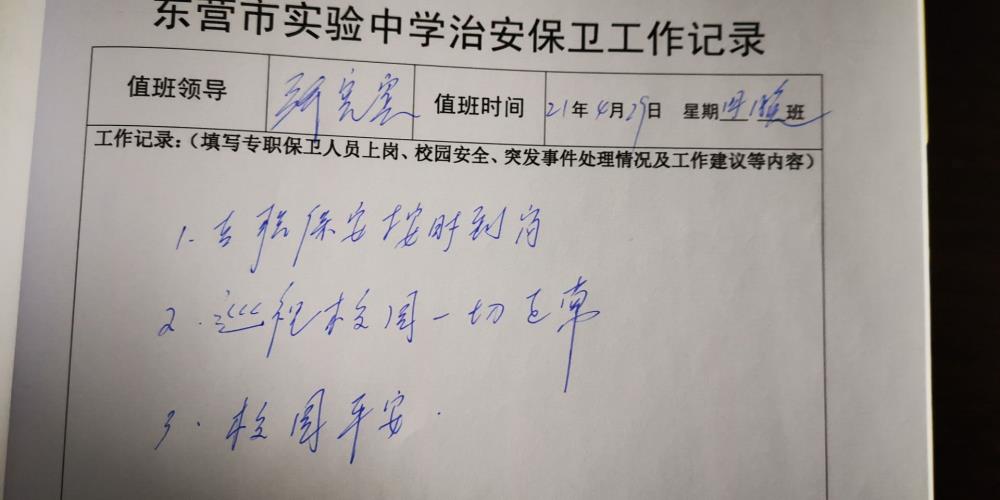 东营市实验中学治安保卫工作记录
值班领导 值班时间 21年4月29日 星期四晚班
工作记录:(填写专职保卫人员上岗、校园安全、突发事件处理情况及工作建议等内容)
1.专职保安按时到岗
2.巡视校园一切正常
3.校园平安.